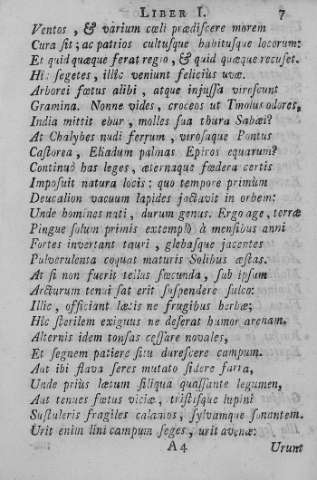 LIBER I. 7
Ventos, & varium cœli prædiscere morem
Cura sit; ac patrios cultusque habitusque locorum:
Et quid quæque ferat regio, & quid quæque recuset.
Hic segetes, illic veniunt feliciùs uvæ.
Arborei fœtus alibi, atque injussa virescunt
Gramina. Nonne vides, croceos ut Tmolus odores,
India mittit ebur, molles sua thura Sabæi?
At Chalybes nudi ferrum, virosaque Pontus
Castorea, Eliadum palmas Epiros equarum?
Continuò has leges, æternaque fœdera certis
Imposuit natura locis: quo tempore primùm
Deucalion vacuum lapides jactavit in orbem:
Unde homines nati, durum genus. Ergo age, terræ
Pingue solum primis extemplò à mensibus anni
Fortes invertant tauri, glebasque jacentes
Pulverulenta coquat maturis Solibus æstas.
At si non fuerit tellus fœcunda, sub ipsum
Arcturum tenui sat erit suspendere sulco:
Illic, officiant lætis ne frugibus herbæ;
Hîc sterilem exiguus ne deserat humor arenam.
Alternis idem tonsas cessare novales,
Et segnem patiere situ durescere campum.
Aut ibi flava seres mutato sidere farra,
Unde priùs lætum siliquâ quassante legumen,
Aut tenues fœtus viciæ, tristisque lupini
Sustuleris fragiles calamos, sylvamque sonantem.
Urit enim lini campum seges, urit avenæ:
A4 Urunt